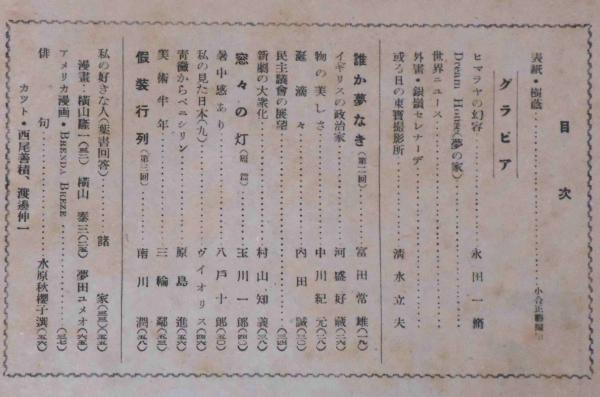 目次
表紙・樹蔭……………小合正勝
グラビア
ヒマラヤの幻容……………永田一脩
Dream House(夢の家)
世界ニュース
外画・銀嶺セレナーデ
或る日の東寶撮影所……………淸水立夫
誰か夢なき(第二回)……………富田常雄(一九)
イギリスの政治家……………河盛好藏(一六)
物の美しさ……………中川紀元(三六)
涎滴々……………内田誠(三二)
民主議會の展望……………(三四)
新劇の大衆化……………村山知義(一八)
窓々の灯(短篇)……………玉川一郎(四一)
暑中感あり……………八戸十郎(五三)
私の見た日本(九)……………ヴイオリス(四六)
靑黴からペニシリン……………原島進(五五)
美術半年……………三輪鄰(五三)
假裝行列(第三回)……………南川潤(五八)
私の好きな人(葉書回答)……………諸家
漫畫・橫山隆一 橫山泰三 夢田ユメオ
アメリカ漫画・BRENDA BREZE……………(三七)
俳句……………水原秋櫻子選(五六)
カット・西尾善積、渡邊伸一